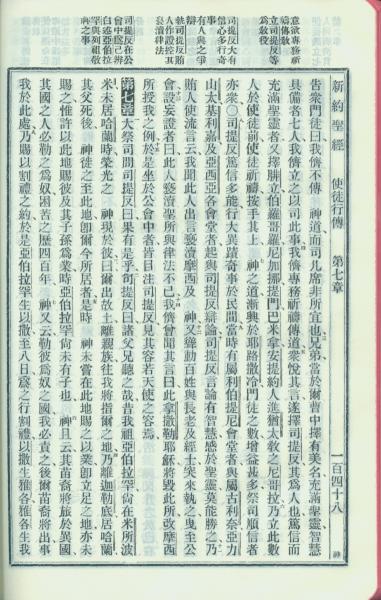 新約聖經 使徒行傳 第七章 一百四十八 神
意欲專務祈
禱傳敎
立司提反等
爲敎役
司提反大有
信心多行奇
事
有人與之爭
辯
執司提反賄
人作證控其
褻瀆律法
司提反在公
會中爲己辨
白述亞伯拉
罕與列祖敬
神之事
告衆門徒曰我儕不傳 神道而司几席非所宜也兄弟當於爾曹中擇有美名充滿聖靈智慧
具備者七人我儕立之以司此事我儕專務祈禱傳道衆悅其言遂擇司提反其爲人也篤信而
充滿聖靈者又擇腓立伯羅哥羅尼加挪提門巴米拿安提約人進猶太敎之尼哥拉乃立此數
人於使徒前使徒祈禱按手其上 神之道漸興於耶路撒冷門徒之數增益甚多祭司順信者
亦衆○司提反篤信多能行大異蹟奇事於民間當時有屬利伯提尼會堂者與屬古利奈亞力
山太基利嘉及亞西亞各會堂者起與司提反辯論司提反言論有智慧感於聖靈莫能勝之乃
賄人使流言云我聞此人出言褻瀆摩西及 神又聳動百姓與長老及經士突來執之曳至公
會設妄證者曰此人褻瀆聖所與律法不已我儕曾聞其言曰此拿撒勒耶穌將毀此所改摩西
所授我之例於是坐於公會中者皆目注司提反見其容若天使之容焉
第七章大祭司問司提反曰果有是乎司提反曰諸父兄聽之哉昔我祖亞伯拉罕尚在米所波
米未居哈蘭時榮光之 神現於彼曰爾出故土離親族往我將指爾之地乃離迦勒底居哈蘭
其父死後 神徙之至此地卽爾今所居者是時 神未嘗在此地賜之以業卽立足之地亦未
賜之惟許以此地賜彼及其子孫爲業時亞伯拉罕尚未有子也 神且云其苗裔將旅於異國
其國之人必勒之爲奴困苦之歷四百年 神又云勒彼爲奴之國我必責之後爾苗裔將出事
我於此處乃賜以割禮之約於是亞伯拉罕生以撒至八日爲之行割禮以撒生雅各雅各生我